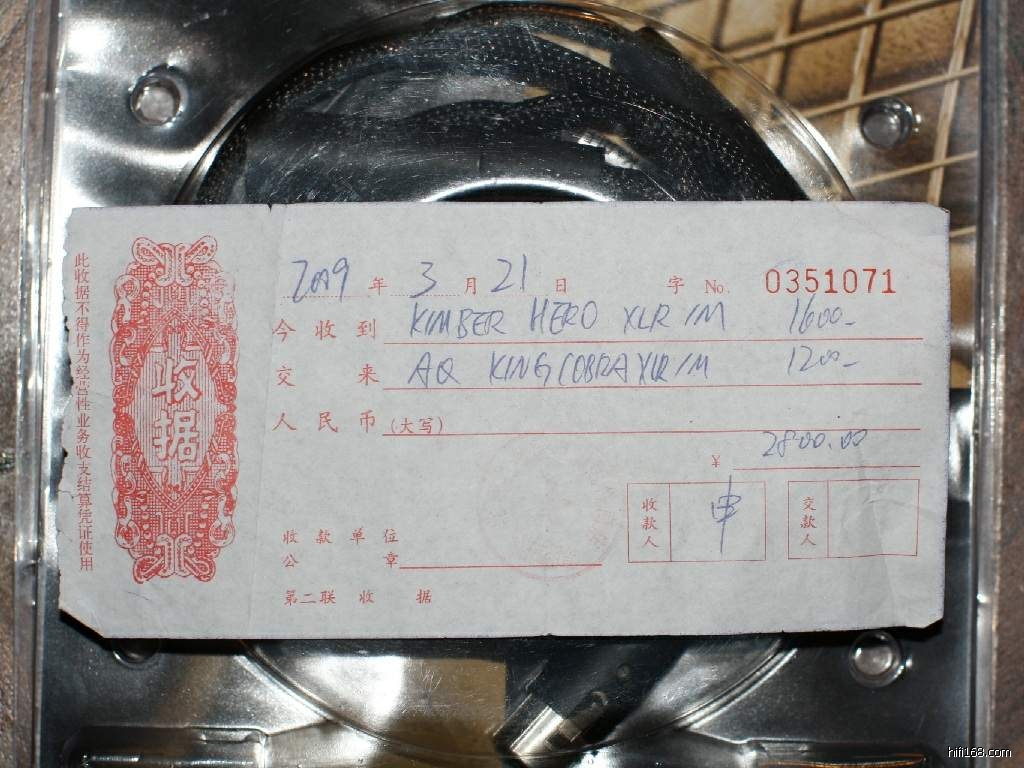 此收据不得作为经营性业务收支结算凭证使用
收据
2009 年 3 月 21 日 字 No. 0351071
今收到 KIMBER HERO XLR 1M 1600-
交来 AQ KING COBRA XLR 1M 1200-
人民币(大写)
¥ 2800.00
收款人 申 交款人
收款单位
公章
第二联 收据
hifi168.com